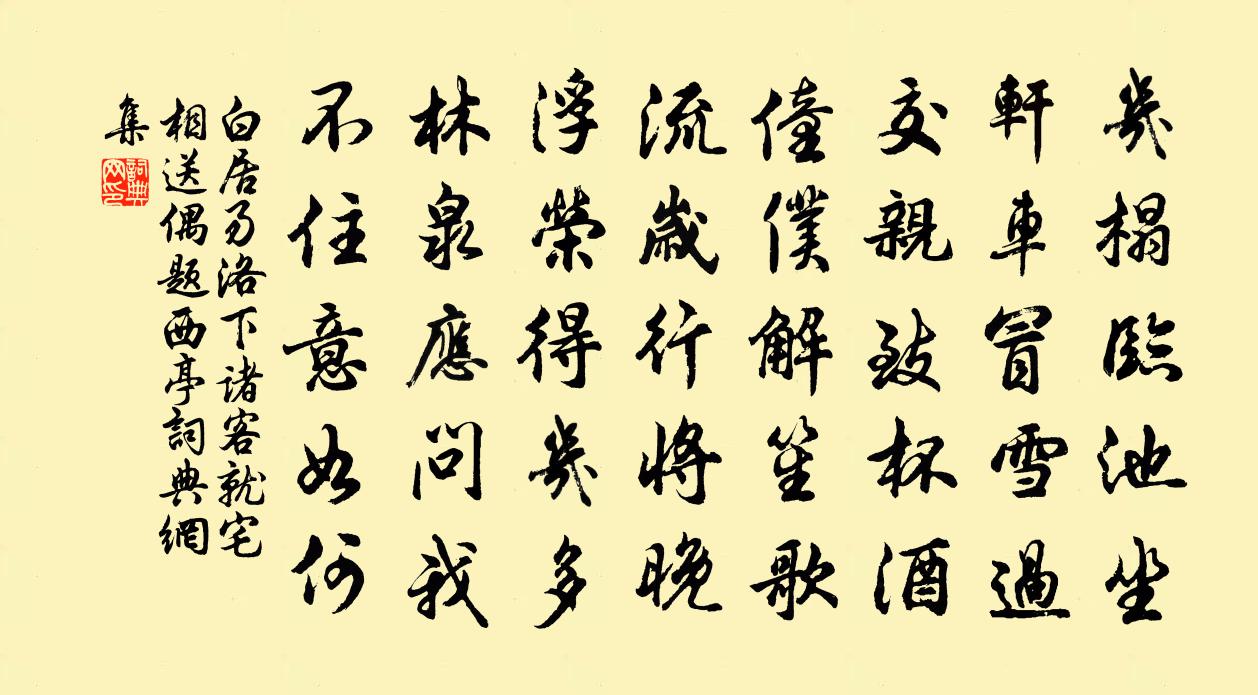 幾榻臨池坐
軒車冒雪過
交親致杯酒
僮僕解笙歌
流歲行將晚
浮榮得幾多
林泉應問我
不住意如何
白居易洛下諸客就宅
相送偶題西亭詞典網
集
詞典
网印